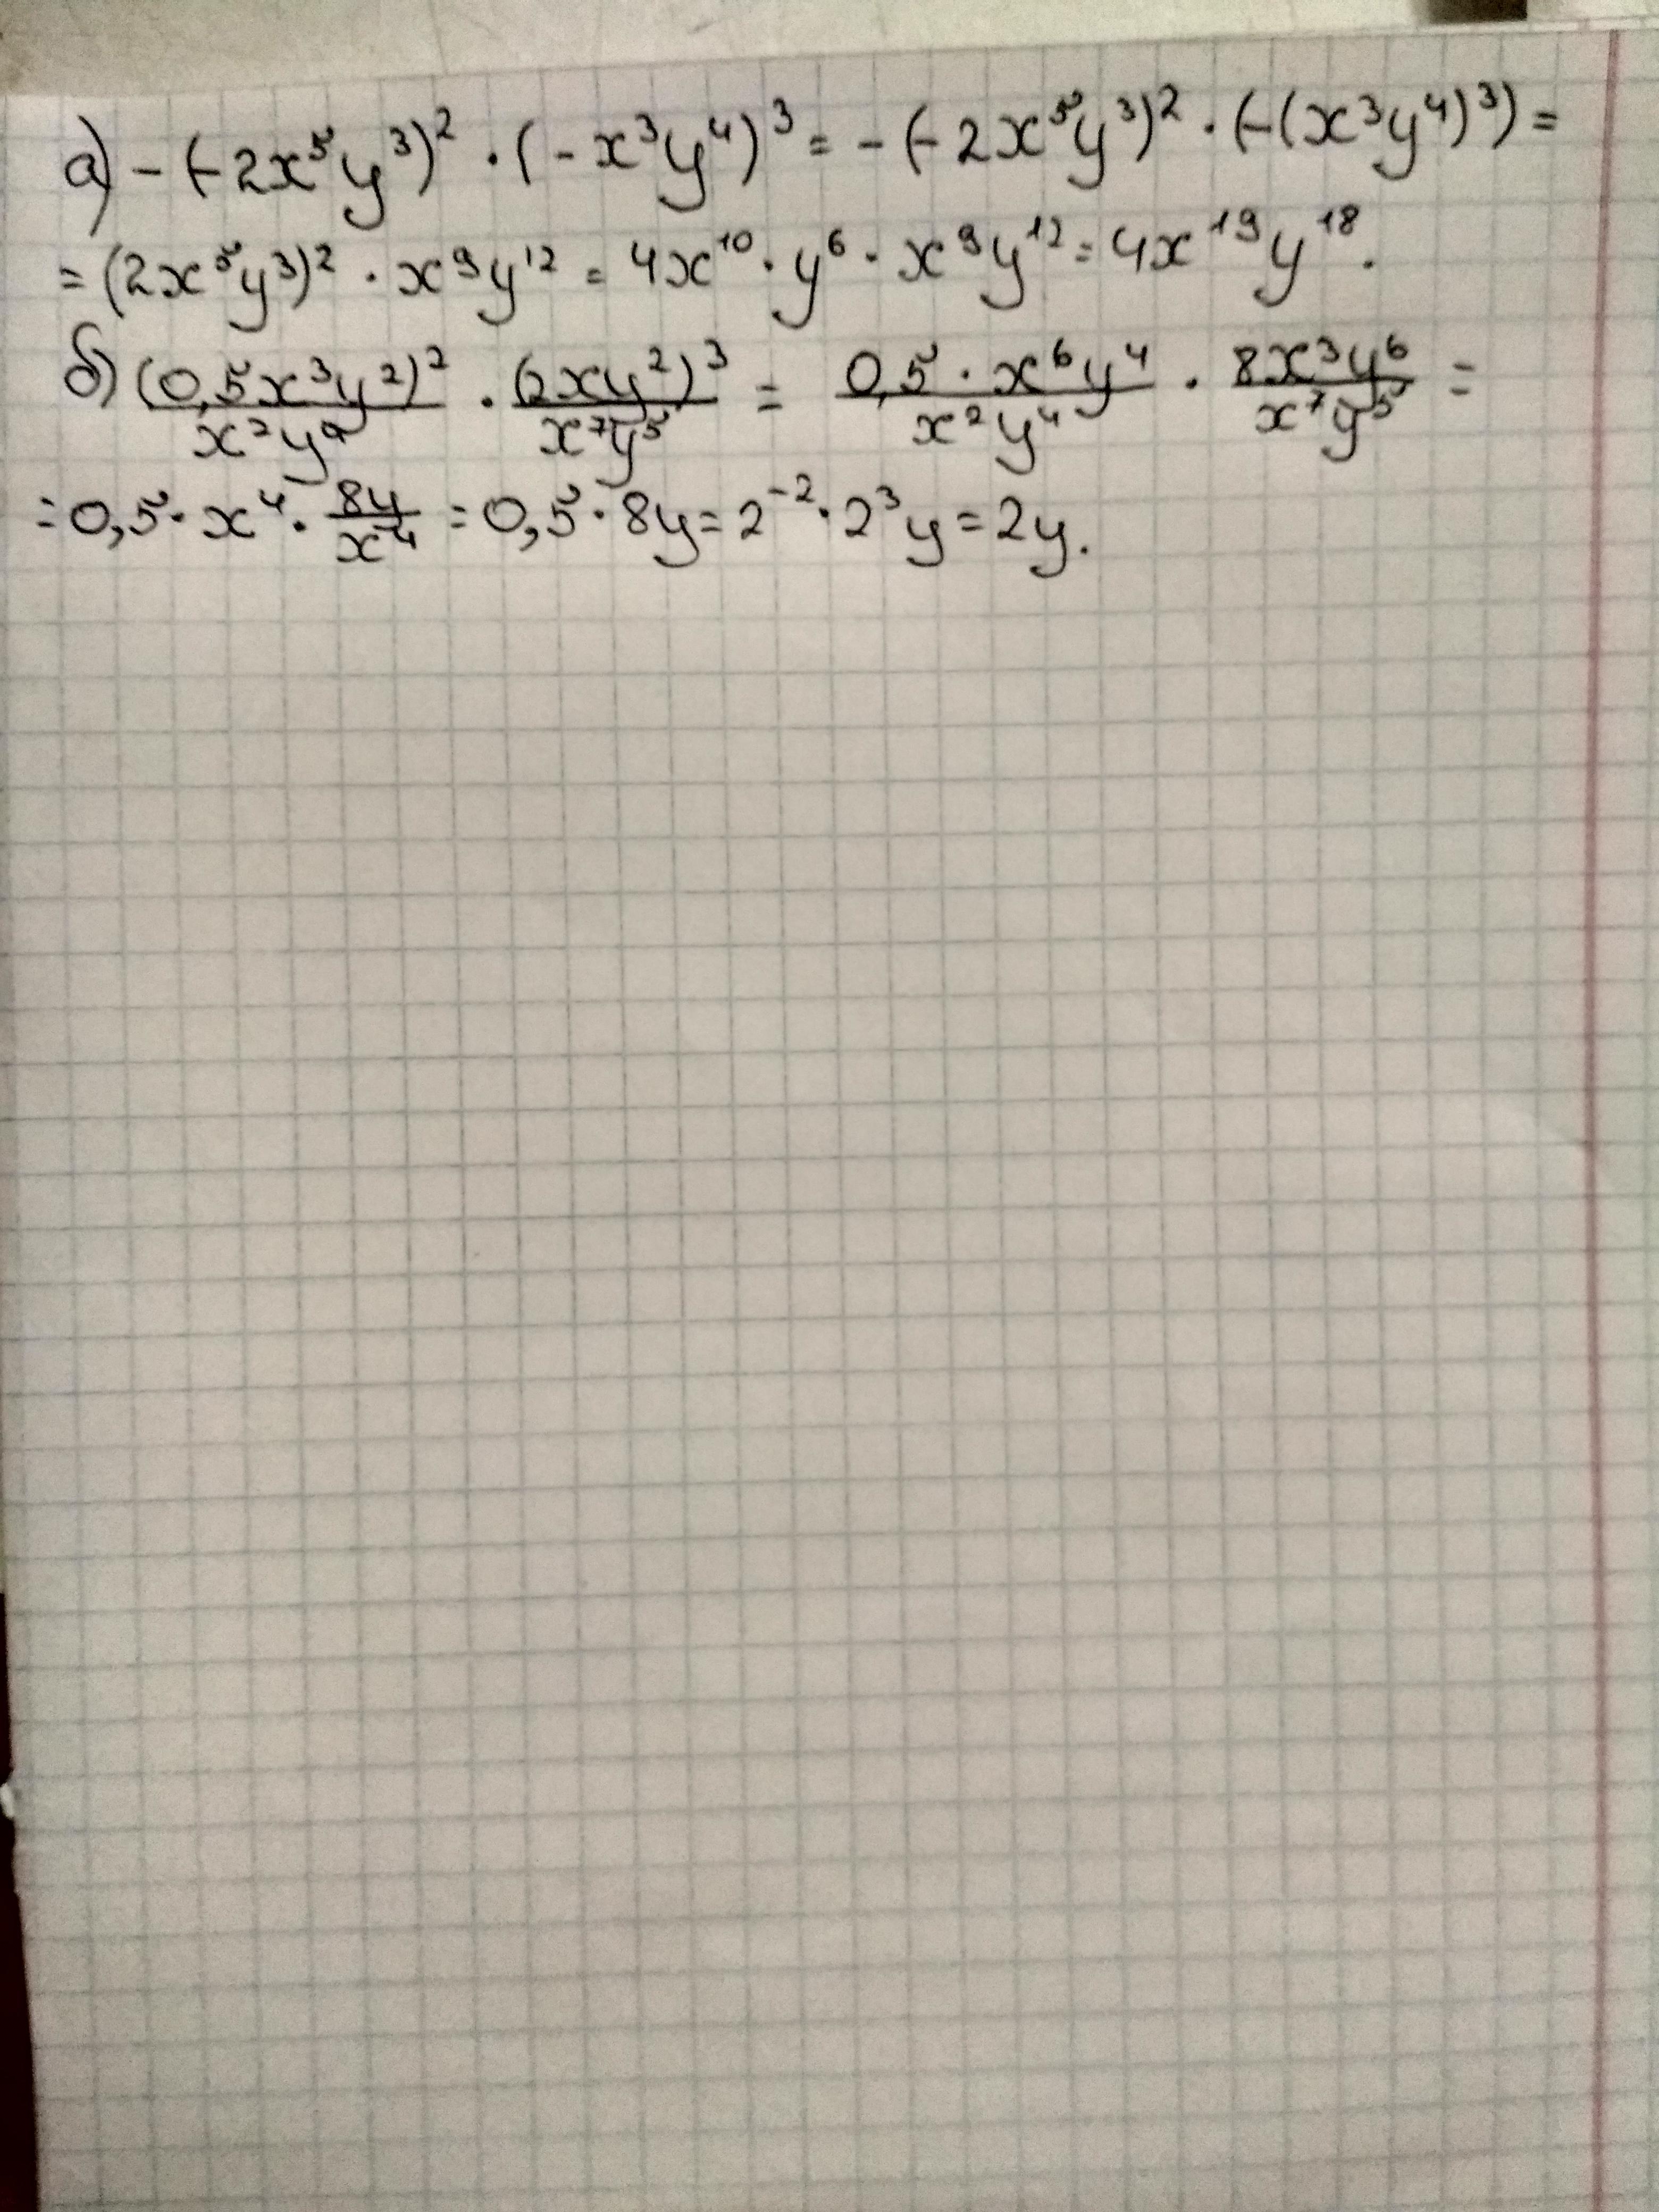 а) -(-2x⁵y³)² · (-x³y⁴)³ = -(-2x⁵y³)² · (-(x³y⁴)³) =
= (2x⁵y³)² · x⁹y¹² = 4x¹⁰ · y⁶ · x⁹y¹² = 4x¹⁹y¹⁸.
б) (0,5x³y²)²/x²y⁴ · (2xy²)³/x⁷y⁵ = 0,5 · x⁶y⁴/x²y⁴ · 8x³y⁶/x⁷y⁵ =
= 0,5 · x⁴ · 8y/x⁴ = 0,5 · 8y = 2⁻² · 2³y = 2y.